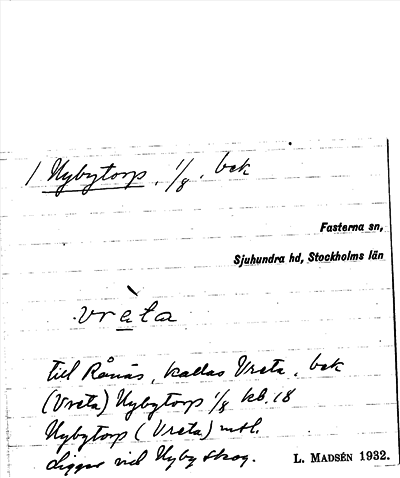 1 Nybytorp, 1/8, bek
Fasterna sn,
Sjuhundra hd, Stockholms län
vrèta
till Rånäs, kallas Vreta, bek
(Vreta) Nybytorp 1/8 kb. 18
Nybytorp (Vreta) mtl.
ligger vid Nyby skog.
L. MADSÉN 1932.